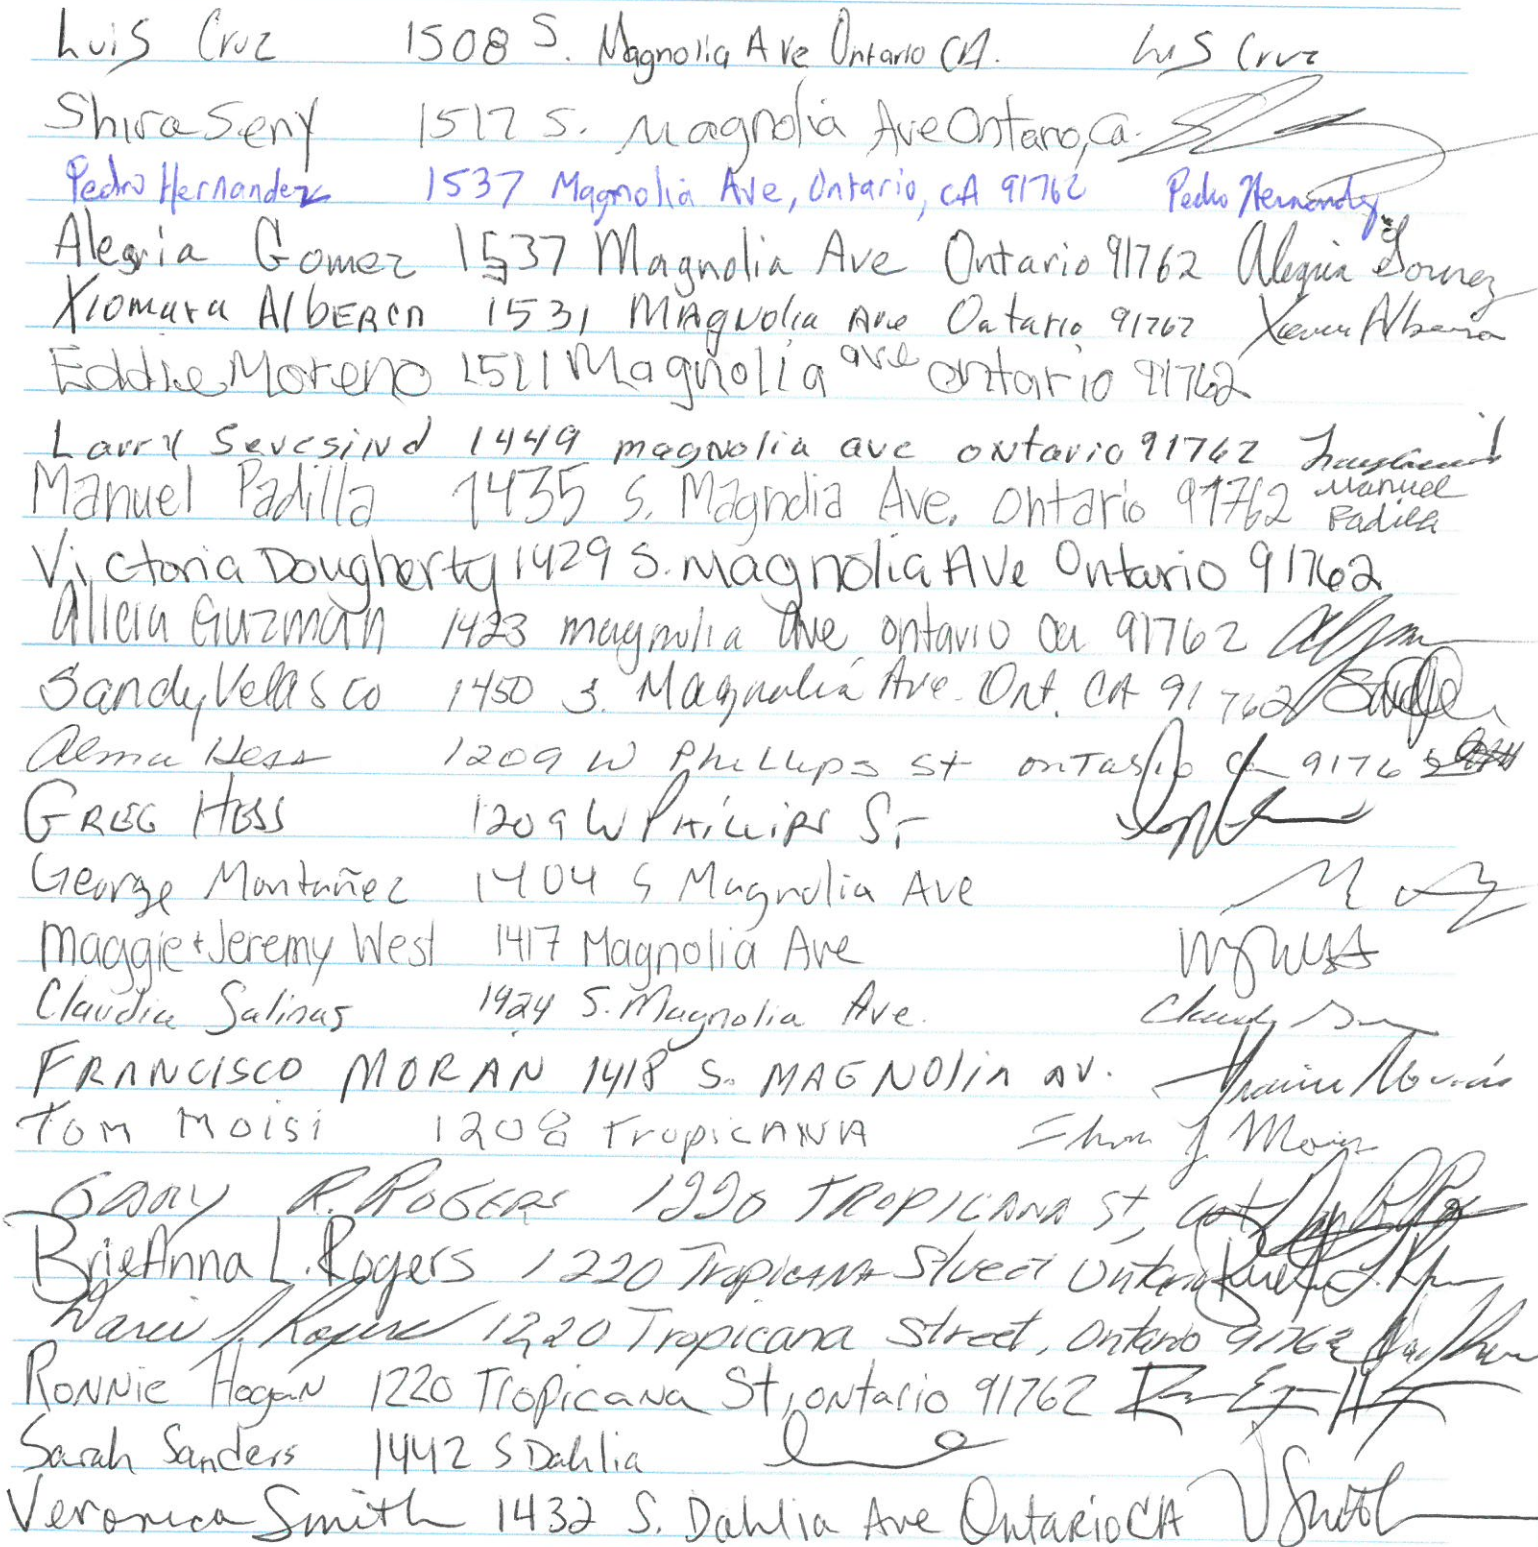 Luis Cruz 1508 S. Magnolia Ave Ontario CA. Luis Cruz
Shira Seny 1517 S. Magnolia Ave Ontario, Ca.
Pedro Hernandez 1537 Magnolia Ave, Ontario, CA 91762 Pedro Hernandez
Alegria Gomez 1537 Magnolia Ave Ontario 91762 Alegria Gomez
Xiomara AlbERCA 1531 MAgNolia Ave Ontario 91762
Eddie Moreno 1511 Magnolia ave ontario 91762
Larry 1449 magnolia ave ontario 91762
Manuel Padilla 1435 S. Magnolia Ave. Ontario 91762 Manuel Padilla
Victoria Dougherty 1429 S. Magnolia Ave Ontario 91762
Alicia Guzman 1423 magnolia ave ontario ca 91762
Sandy Velasco 1450 S. Magnolia Ave. Ont. CA 91762
Alma Hess 1209 W Phillips St ontario Ca 9176
GREG HESS 1209 W PHILLIPS ST
George Montañez 1404 S Magnolia Ave
Maggie + Jeremy West 1417 Magnolia Ave
Claudia Salinas 1424 S. Magnolia Ave.
FRANCISCO MORAN 1418 S. MAGNOliA AV.
Tom Moisi 1208 TropicANA
GARY R. ROGERS 1220 TROPICANA St, Ont
BrieAnna L. Rogers 1220 Tropicana Street Ontario
1220 Tropicana Street, Ontario 91762
Ronnie Hogan 1220 Tropicana St, Ontario 91762
Sarah Sanders 1442 S Dahlia
Veronica Smith 1432 S. Dahlia Ave Ontario CA V Smith